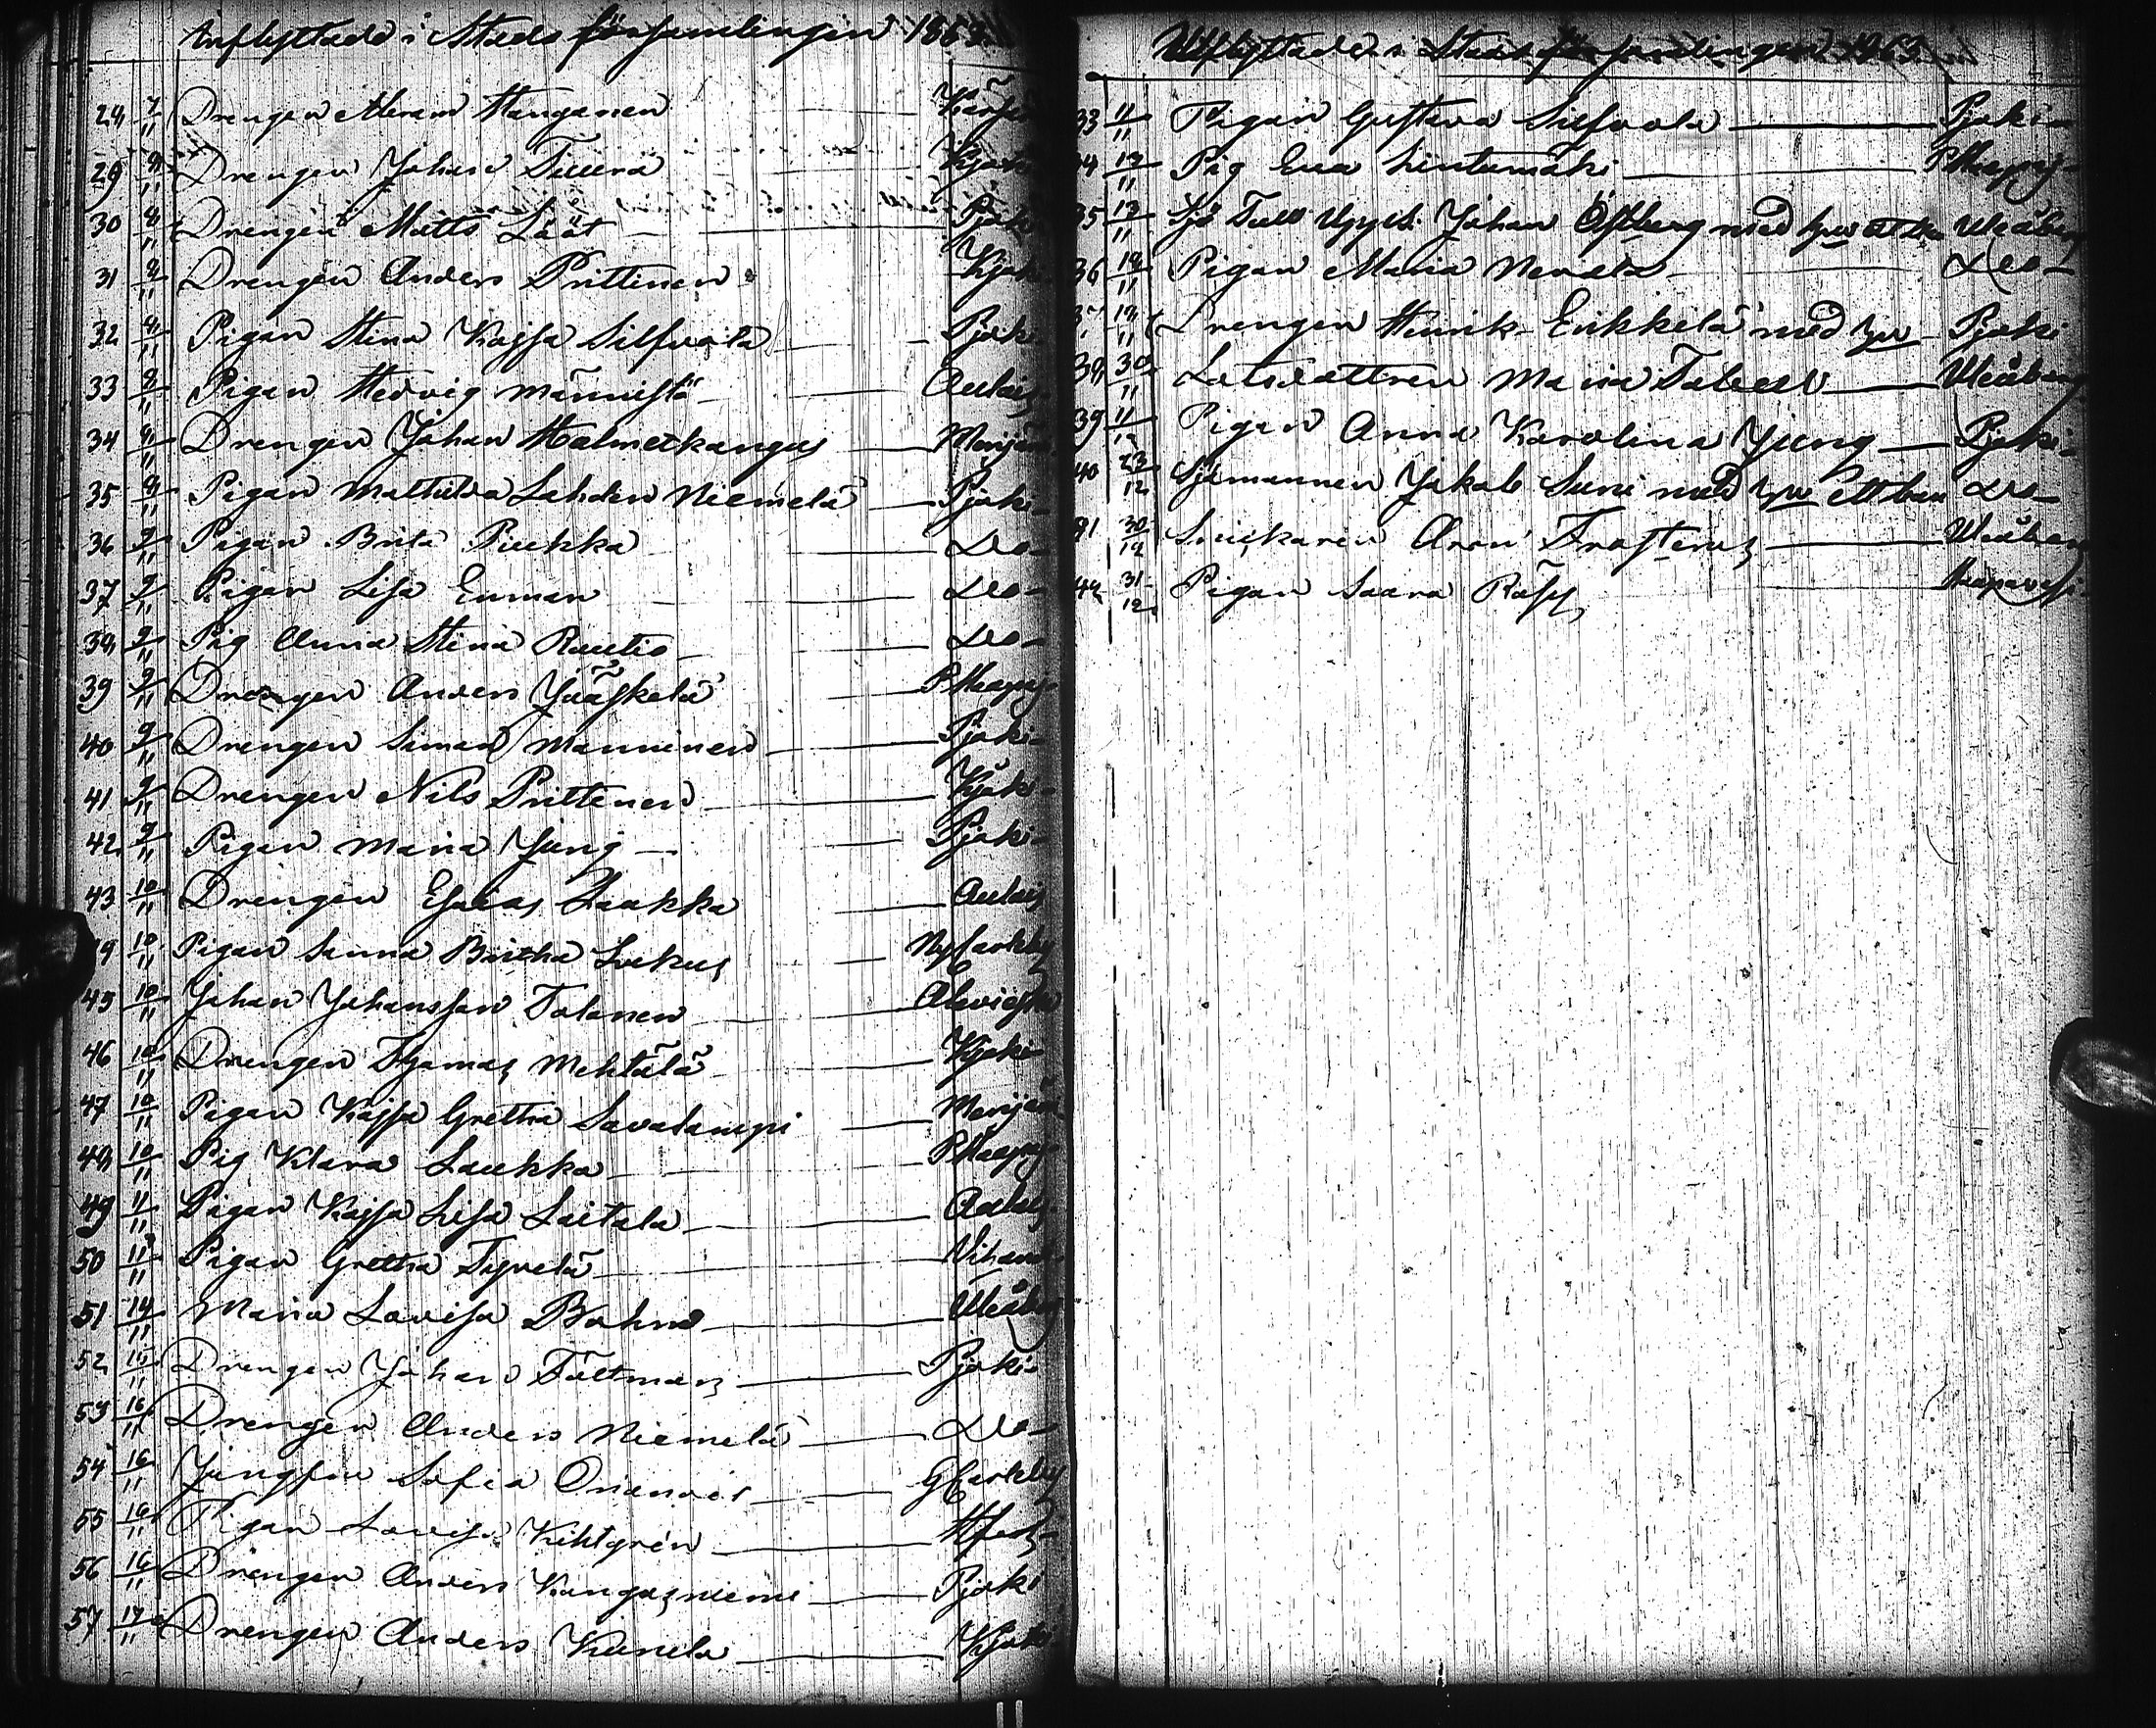 Inflyttade i Stads församlingen 1863
28 7/11 Drengen Abram Kanganen Kärsä
29 8/11 Drengen Johan Tuura Kjoki
30 8/11 Drengen Matts Lööt Pjoki
31 8/11 Drengen Anders Prittinen Kjoki
32 8/11 Pigan Stina Kajsa Silfvola Pjoki
33 8/11 Pigan Hedvig Männistö Pulais
34 8/11 Drengen Johan Halmetkangas Merijär
35 8/11 Pigan Mathilda Lahden Niemelä Pjoki
36 9/11 Pigan Brita Pirkka Do
37 9/11 Pigan Lisa Enman Do
38 9/11 Pig Anna Stina Rautio Do
39 9/11 Drengen Anders Jääskelä PHaapaj
40 9/11 Drengen Simon Manninen Pjoki
41 9/11 Drengen Nils Prittinen Kjoki
42 9/11 Pigan Maria Jung Pjoki
43 10/11 Drengen Esaias Laukka Pulais
10/11 Pigan Sanna Britha Lukus Nycarleby
45 10/11 Johan Johansson Tolonen Alavieska
46 10/11 Drengen Thomas Mehtälä Kjoki
47 10/11 Pigan Kajsa Gretha Savalampi Merijär
48 10/11 Pig Klara Laukka PHaapaj
49 11/11 Pigan Kajsa Lisa Laitala Pulais
50 11/11 Pigan Gretha Tyvelä Vihand
51 14/11 Maria Lovisa Bohm Uleåborg
52 15/11 Drengen Johan Fältmars Pjoki
53 16/11 Drengen Anders Niemelä Do
54 16/11 Jungfru Sofia GCarleby
55 16/11 Pigan Lovisa Kihlgren Hfors
56 16/11 Drengen Anders Kangasniemi Pjoki
57 17/11 Drengen Anders Kunela Kjoki
Utflyttade i Stads församlingen 1863
33 11/11 Pigan Gustava Silfvola Pjoki
34 13/11 Pig Eva Lintumäki PHaapaj
35 13/11 Sjö Tull Upps. Johan Östberg med hru Uleåborg
36 18/11 Pigan Maria Nevala Do
37 19/11 Drengen Henrik Erikkilä med hru Pjoki
38 30/11 Lotsdottren Maria Tabell Uleåborg
39 11/12 Pigan Anna Karolina Jung Pjoki
40 23/12 Sjömannen Jakob Suni med hru ett barn Do
41 30/12 Snickaren Aron Frosterus Uleåborg
42 31/12 Pigan Saara Räss Haapavesi